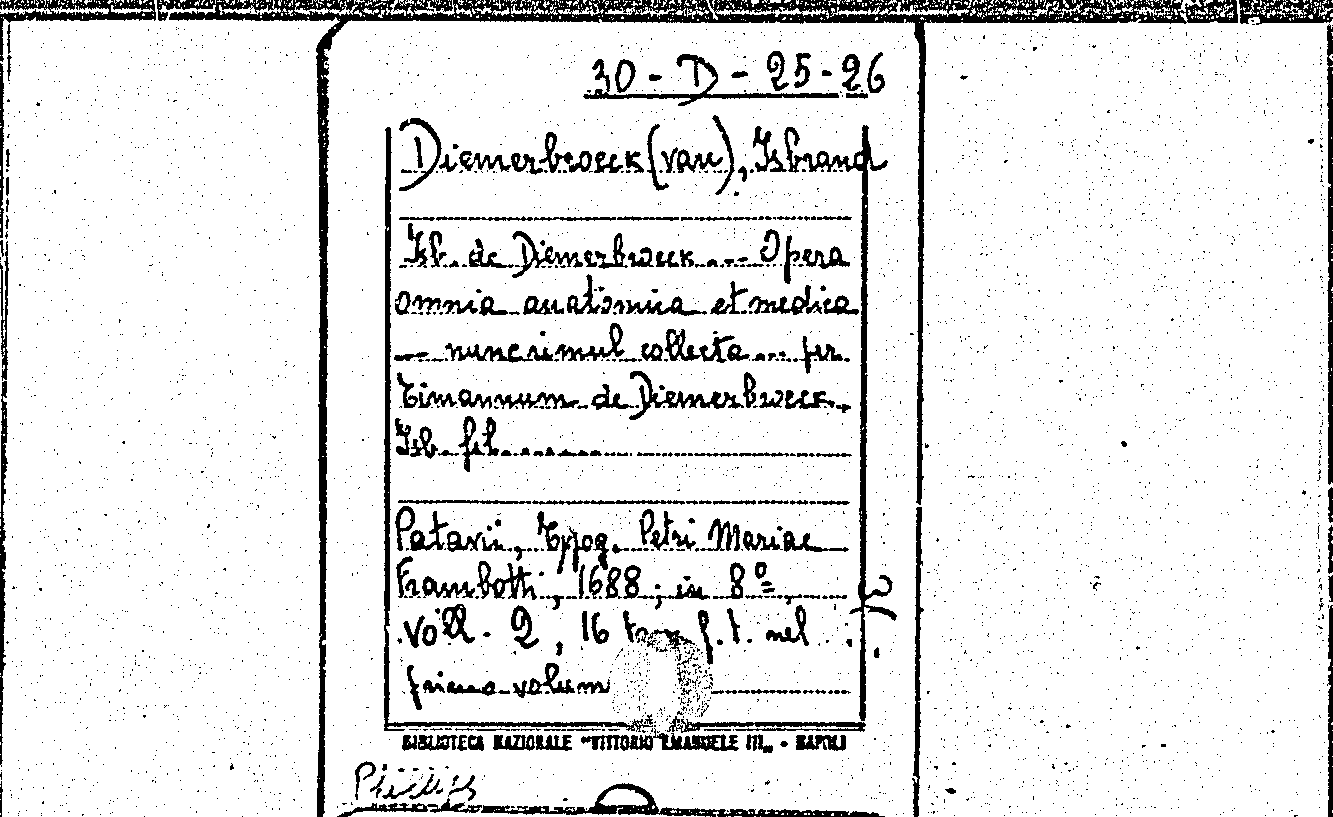 30-D-25-26
Diemerbroeck (van), Isbrand
Isb. de Diemerbroeck ... Opera
omnia anatomica et medica
... nunc simul collecta ... per
Timannum de Diemerbroeck.
Isb. fil.........
Patavii, Typog. Petri Mariae
Frambotti, 1688; in 8º,
voll. 2, 16 tav. f.t. nel
primo volum
BIBLIOTECA NAZIONALE "VITTORIO EMANUELE III„ - NAPOLI
Phillips